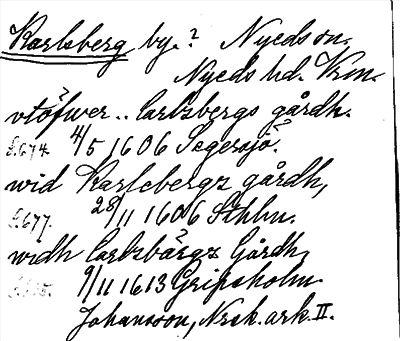 Karlsberg by.? Nyeds sn.
Nyeds hd. Vrm.
vtöfwer .. Carlzbergs gårdh.
£674. 4/5 1606 Segersjö.
wid Karlebergz gårdh,
£677. 28/11 1606 Sthlm.
widh Carlzbärgz Gårdh,
9/11 1613 Gripsholm.
Johansson, Nsek. ark. II.